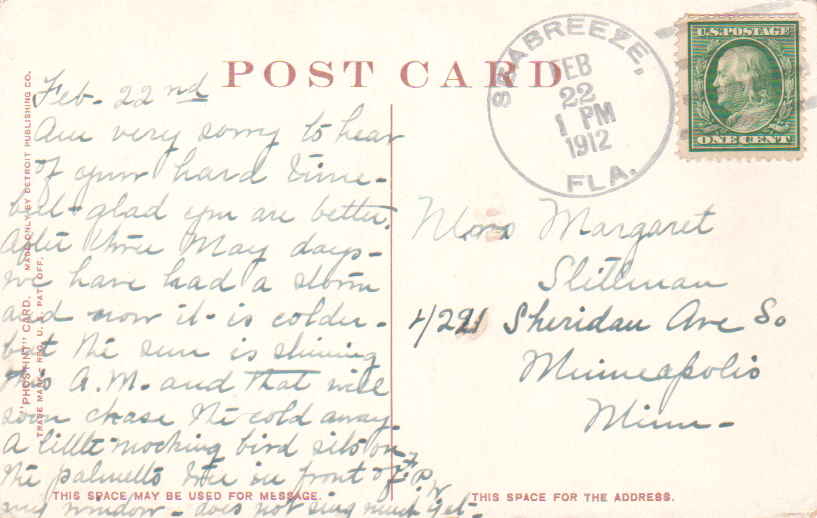 POST CARD
SEABREEZE,
FEB
22
1 PM
1912
FLA.
U.S. POSTAGE
ONE CENT
"PHOSTINT" CARD. MADE ONLY BY DETROIT PUBLISHING CO.
TRADE MARK REG. U.S. PAT. OFF.
Feb- 22nd
Am very sorry to hear
of your hard time-
but-glad you are better.
After three May days-
we have had a storm
and now it-is colder-
but the sun is shining
this A.M. and that will
soon chase the cold away.
A little mocking bird sits on
the palmetto tree in front of
my window- does not sing much yet-
F.P.W
Margaret
Stillman
4221 Sheridan Ave So
Minneapolis
Minn-
THIS SPACE MAY BE USED FOR MESSAGE.
THIS SPACE FOR THE ADDRESS.